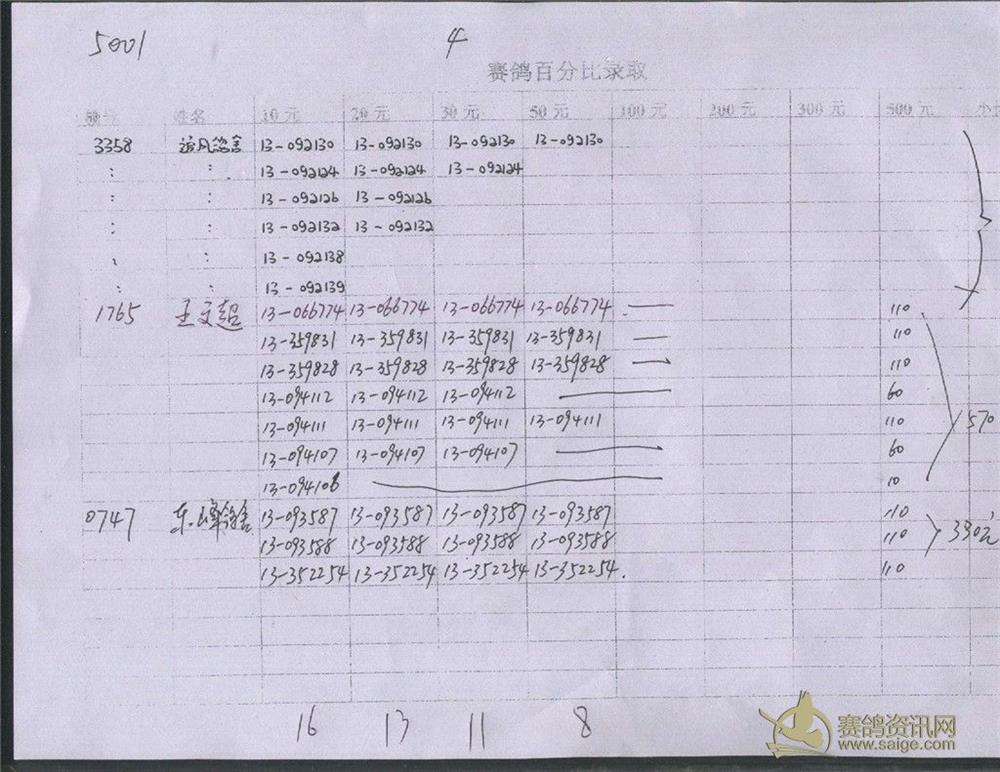 5001 4
赛鸽百分比录取
姓名 10元 20元 30元 50元 100元 200元 300元 500元 小
3358 追风鸽舍 13-092130 13-092130 13-092130 13-092130
: : 13-092124 13-092124 13-092124
: : 13-092126 13-092126
: : 13-092132 13-092132
: : 13-092138
: : 13-092139
1765 王文超 13-066774 13-066774 13-066774 13-066774. — 110
13-359831 13-359831 13-359831 13-359831 — 110
13-359828 13-359828 13-359828 13-359828 — 110
13-094112 13-094112 13-094112 — 60
13-094111 13-094111 13-094111 13-094111 110 570
13-094107 13-094107 13-094107 — 60
13-094106 — 10
0747 东峰鸽舍 13-093587 13-093587 13-093587 13-093587 110
13-093588 13-093588 13-093588 13-093588 110 330元
13-352254 13-352254 13-352254 13-352254. 110
16 13 11 8
赛鸽资讯网
www.saige.com